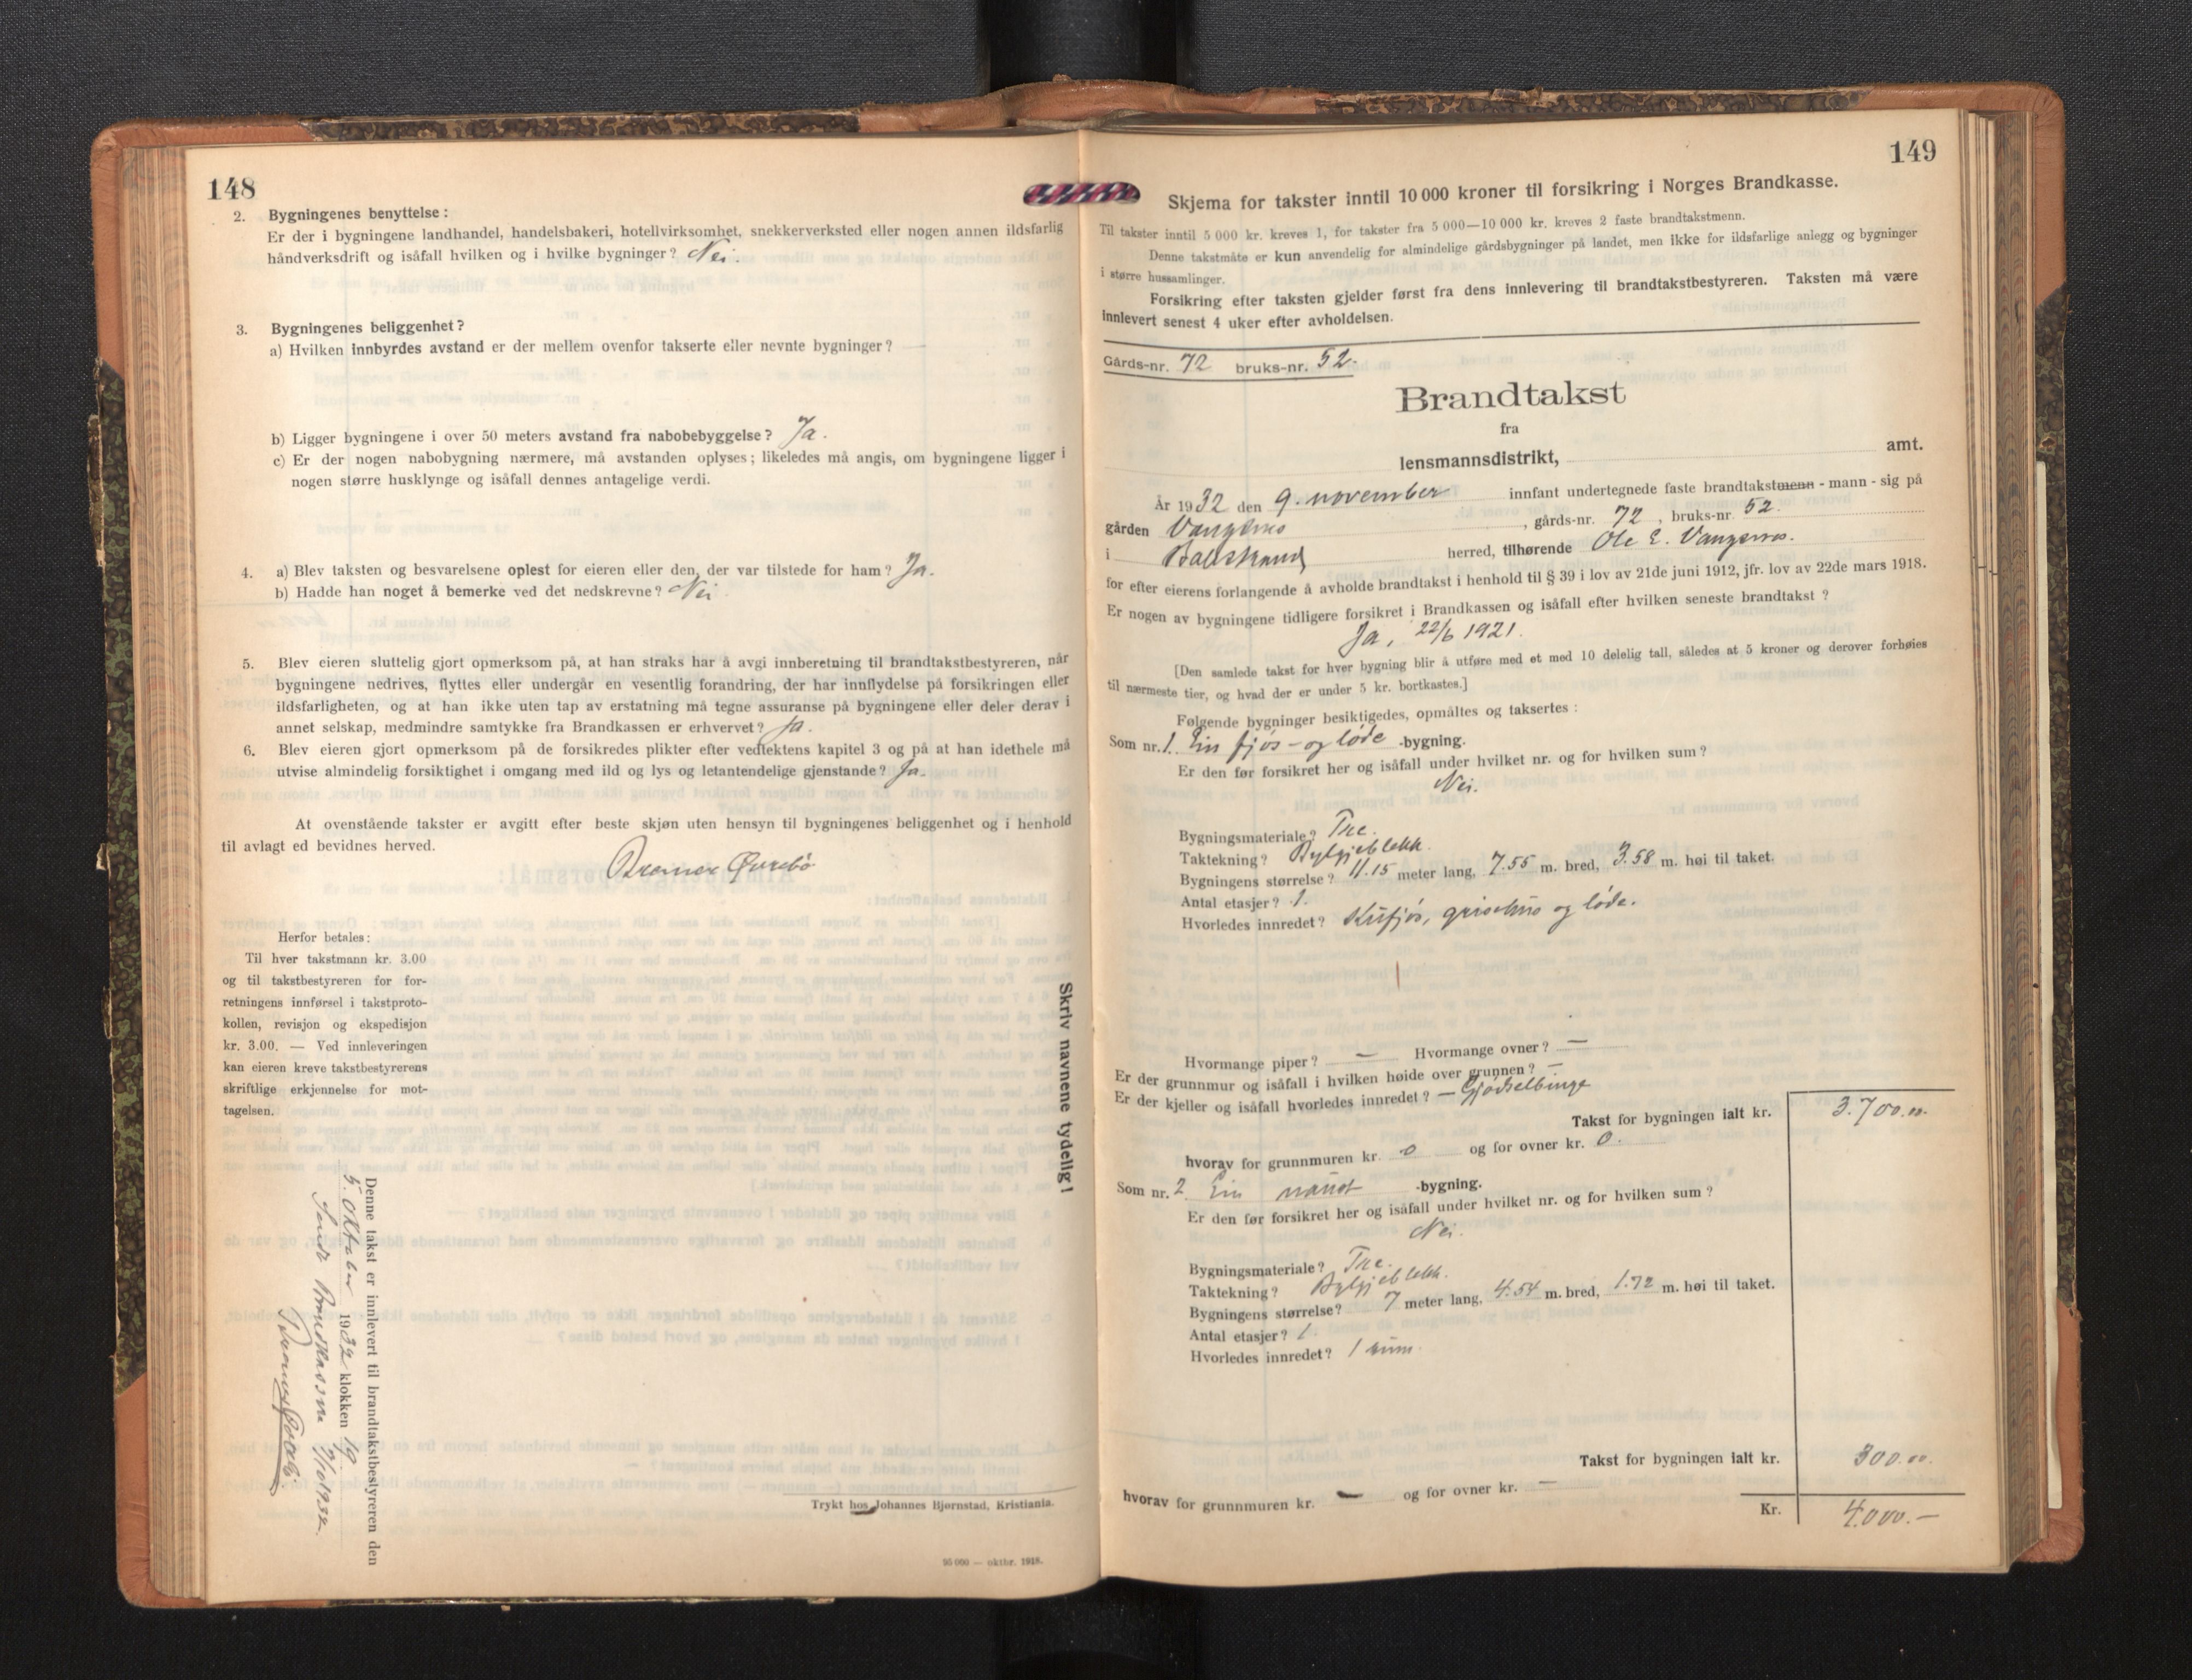 148
2. Bygningenes benyttelse :
Er der i bygningene landhandel, handelsbakeri, hotellvirksomhet, snekkerverksted eller nogen annen ildsfarlig
håndverksdrift og isåfall hvilken og i hvilke bygninger? Nei.
3. Bygningenes beliggenhet?
a) Hvilken innbyrdes avstand er der mellem ovenfor takserte eller nevnte bygninger?
b) Ligger bygningene i over 50 meters avstand fra nabobebyggelse? Ja.
c) Er der nogen nabobygning nærmere, må avstanden oplyses; likeledes må angis, om bygningene ligger i
nogen større husklynge og isåfall dennes antagelige verdi.
4. a) Blev taksten og besvarelsene oplest for eieren eller den, der var tilstede for ham? Ja.
b) Hadde han noget å bemerke ved det nedskrevne? Nei
5. Blev eieren sluttelig gjort opmerksom på, at han straks har å avgi innberetning til brandtakstbestyreren, når
bygningene nedrives, flyttes eller undergår en vesentlig forandring, der har innflydelse på forsikringen eller
ildsfarligheten, og at han ikke uten tap av erstatning må tegne assuranse på bygningene eller deler derav i
annet selskap, medmindre samtykke fra Brandkassen er erhvervet? Ja.
6. Blev eieren gjort opmerksom på de forsikredes plikter efter vedtektens kapitel 3 og på at han idethele må
utvise almindelig forsiktighet i omgang med ild og lys og letantendelige gjenstande? Ja.
At ovenstående takster er avgitt efter beste skjøn uten hensyn til bygningenes beliggenhet og i henhold
til avlagt ed bevidnes herved.
Øvrebö
Herfor betales:
Til hver takstmann kr. 3.00
og til takstbestyreren for for-
retningens innførsel i takstproto-
kollen, revisjon og ekspedisjon
kr. 3.00. — Ved innleveringen
kan eieren kreve takstbestyrerens
skriftlige erkjennelse for mot-
tagelsen.
Skriv navnene tydelig!
Denne takst er innlevert til brandtakstbestyreren den
5. oktober 1932 klokken 19
Sendt Brandkassen 7/10 1932.
Trykt hos Johannes Bjørnstad, Kristiania.
95 000 — oktbr. 1918.
149
Skjema for takster inntil 10 000 kroner til forsikring i Norges Brandkasse.
Til takster inntil 5 000 kr. kreves 1, for takster fra 5 000—10 000 kr. kreves 2 faste brandtakstmenn.
Denne takstmåte er kun anvendelig for almindelige gårdsbygninger på landet, men ikke for ildsfarlige anlegg og bygninger
i større hussamlinger.
Forsikring efter taksten gjelder først fra dens innlevering til brandtakstbestyreren. Taksten må være
innlevert senest 4 uker efter avholdelsen.
Gårds-nr. 72 bruks-nr. 52.
Brandtakst
fra
lensmannsdistrikt, amt.
År 1932 den 9. november innfant undertegnede faste brandtakstmenn - mann - sig på
gården Vangsnes, gårds-nr. 72, bruks-nr. 52.
i Balestrand herred, tilhørende Ole E. Vangsnes.
for efter eierens forlangende å avholde brandtakst i henhold til § 39 i lov av 21de juni 1912, jfr. lov av 22de mars 1918.
Er nogen av bygningene tidligere forsikret i Brandkassen og isåfall efter hvilken seneste brandtakst ?
Ja, 22/6 1921.
[Den samlede takst for hver bygning blir å utføre med et med 10 delelig tall, således at 5 kroner og derover forhøies
til nærmeste tier, og hvad der er under 5 kr. bortkastes.]
Følgende bygninger besiktigedes, opmåltes og taksertes :
Som nr. 1. Ein fjós- og löde -bygning.
Er den før forsikret her og isåfall under hvilket nr. og for hvilken sum?
Nei.
Bygningsmateriale? Tre.
Taktekning? Bylgjeblekk.
Bygningens størrelse? 11.15 meter lang, 7.55 m. bred, 3.58 m. høi til taket.
Antal etasjer? 1.
Hvorledes innredet? Kufjós, grisehus og löde.
Hvormange piper? — Hvormange ovner? —
Er der grunnmur og isåfall i hvilken høide over grunnen? —
Er der kjeller og isåfall hvorledes innredet? — Gjödselbinge
Takst for bygningen ialt kr. 3.700.00.
hvorav for grunnmuren kr. 0 og for ovner kr. 0.
Som nr. 2 Ein naust -bygning.
Er den før forsikret her og isåfall under hvilket nr. og for hvilken sum ?
Nei.
Bygningsmateriale? Tre.
Taktekning? Bylgjeblekk.
Bygningens størrelse? 7 meter lang, 4.54 m. bred, 1.72 m. høi til taket.
Antal etasjer? 1.
Hvorledes innredet? 1 rum.
Takst for bygningen ialt kr. 300.00.
hvorav for grunnmuren kr. — og for ovner kr. —
Kr. 4.000.—